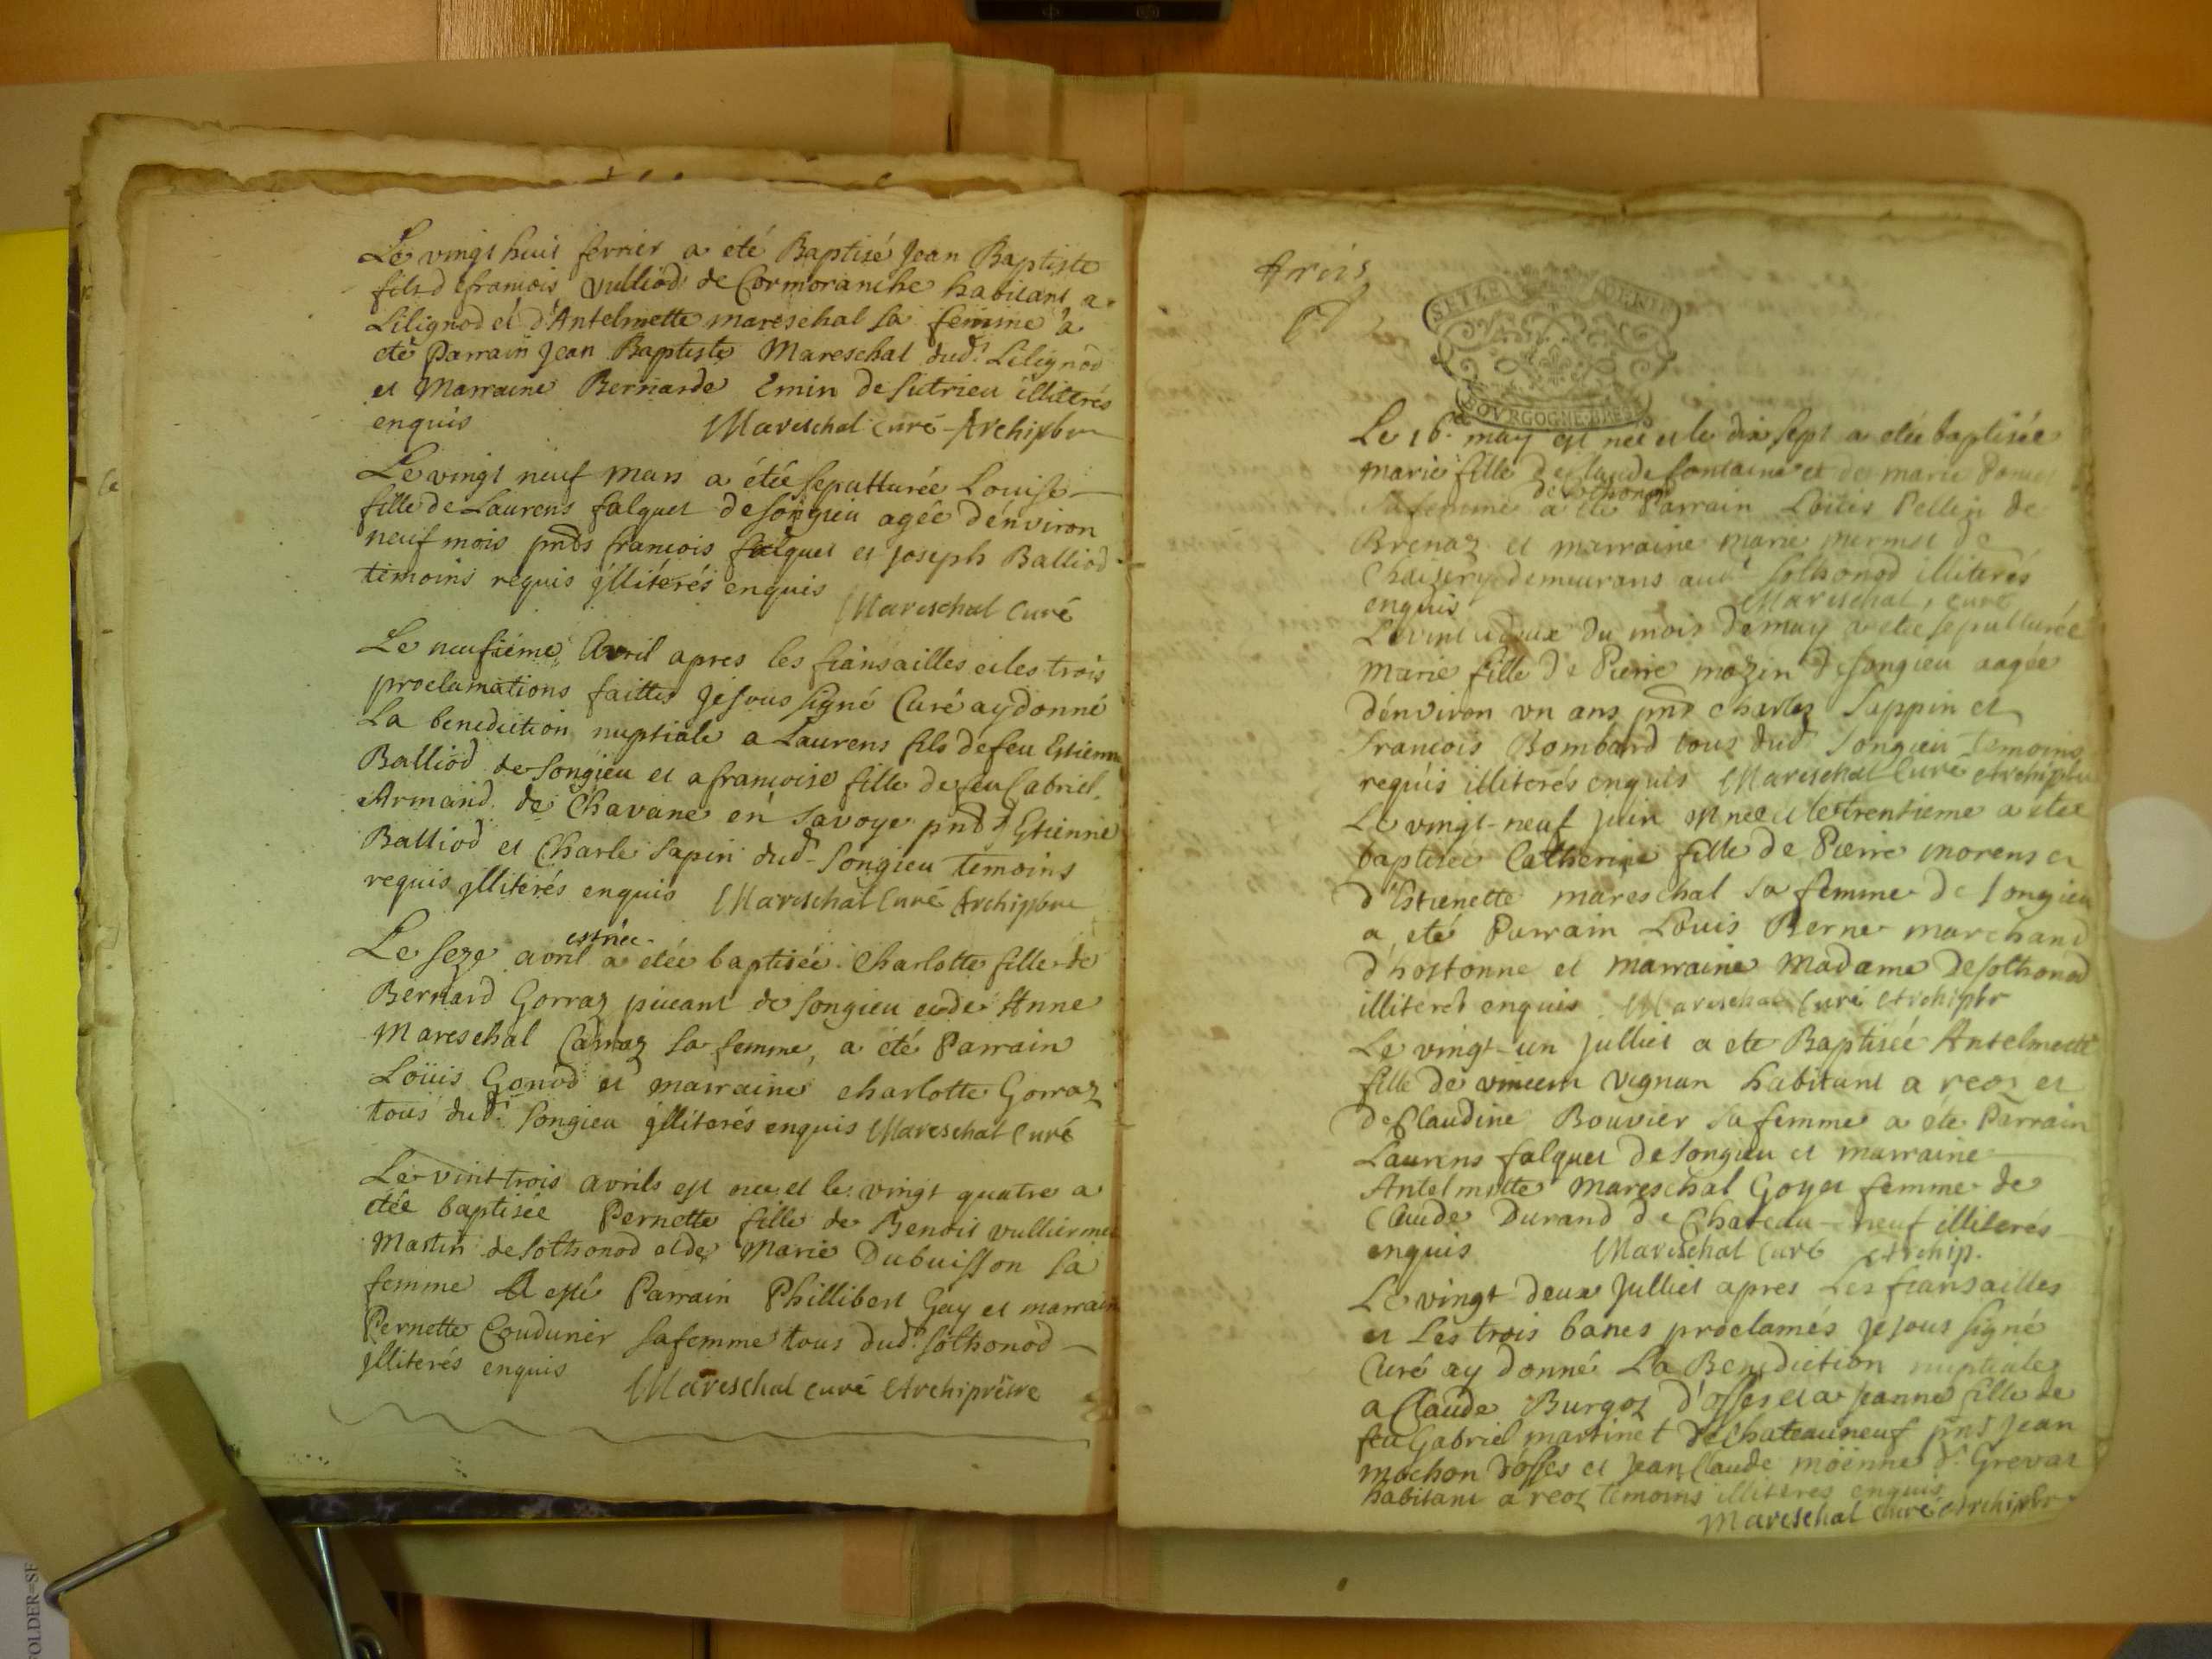 Le vingt huit fevrier a eté Baptisé Jean Baptiste
fils d francois Vulliod de Cormoranche habitant a
Lilignod et d'Antelmette mareschal sa femme a
eté Parrain Jean Baptiste Mareschal dud.t Lilignod
et Marraine Bernarde Emin de Sutrieu illiterés
enquis Mareschal Curé Archipbre
Le vingt neuf Mars a étée sepulturée Louise
fille de Laurens falquet de Songieu agée d'environ
neuf mois pnts francois falquet et Joseph Balliod
témoins requis illiterés enquis
Mareschal Curé
Le neufiéme Avril apres les fiansailles et les trois
proclamations faittes Je sous signé Curé ay donné
La benediction nuptiale a Laurens fils de feu Estienne
Balliod de Songieu et a francoise fille de feu Gabriel
Armand de Chavane en Savoye pnts Etienne
Balliod et Charle Sapin dud.t Songieu temoins
requis illiterés enquis Mareschal Curé Archipbre
est née
Le seze avril a étée baptisée Charlotte fille de
Bernard Gorraz de Songieu et de Anne
Mareschal Carraz sa femme, a été Parrain
Loüis Gonod et marraine charlotte Gorraz
tous dud.t Songieu illiterés enquis Mareschal Curé
Le vint trois avrils est née et le vingt quatre a
etée baptisée Pernette fille de Benoit vulliermet
Martin de Sothonod et de Marie Dubuisson sa
femme A esté Parrain Phillibert Gay et marraine
Pernette Coudurier sa femme tous dud.t Sothonod
illiterés enquis
Mareschal curé Archiprêtre
trois
SEIZE DENIERS
BOVRGOGNE BRESSE
Le 16.e may est née et le dix sept a etée baptisée
marie fille de Claude fontaine et de marie
de Sothonod
sa femme a été Parrain Loüis Pellin de
Brenaz et marraine marie mermet de
Chaizery demeurans aud.t Sothonod illiterés
enquis Mareschal, curé
Le vint deux du mois de may a etée sepulturée
marie fille de Pierre mozin de Songieu aagée
d'environ un ans pnts charles Sappin et
francois Bombard tous dud.t Songieu temoins
requis illiterés enquis Mareschal Curé Archipbre
Le vingt-neuf juin est née et le trentieme a etée
baptisée Catherine fille de Pierre morens et
d'Estienette mareschal sa femme de Songieu
a, eté Parrain Louis Berne marchand
d'hostonne et marraine Madame de Sothonod
illiterés enquis Mareschal Curé Archipbr
Le vingt-un Julliet a ete Baptisée Antelmette
fille de vincent Vignan habitant a reoz et
de Claudine Bouvier sa femme a éte Parrain
Laurens falquet de Songieu et marraine
Antelmette Mareschal Goyet femme de
Claude Durand de Chateau-neuf illiterés
enquis Mareschal Curé Archip.
Le vingt deux Julliet apres Les fiansailles
et Les trois banes proclamés je sous signé
Curé ay donné La Benediction nuptiale
a Claude Burgoz d'osses et a Jeanne fille de
feu Gabriel martinet de chateauneuf pnts Jean
mochon d'osses et Jean Claude möenne d. Grevaz
habitant a reoz temoins illiteres enquis
Mareschal Curé Archipbr